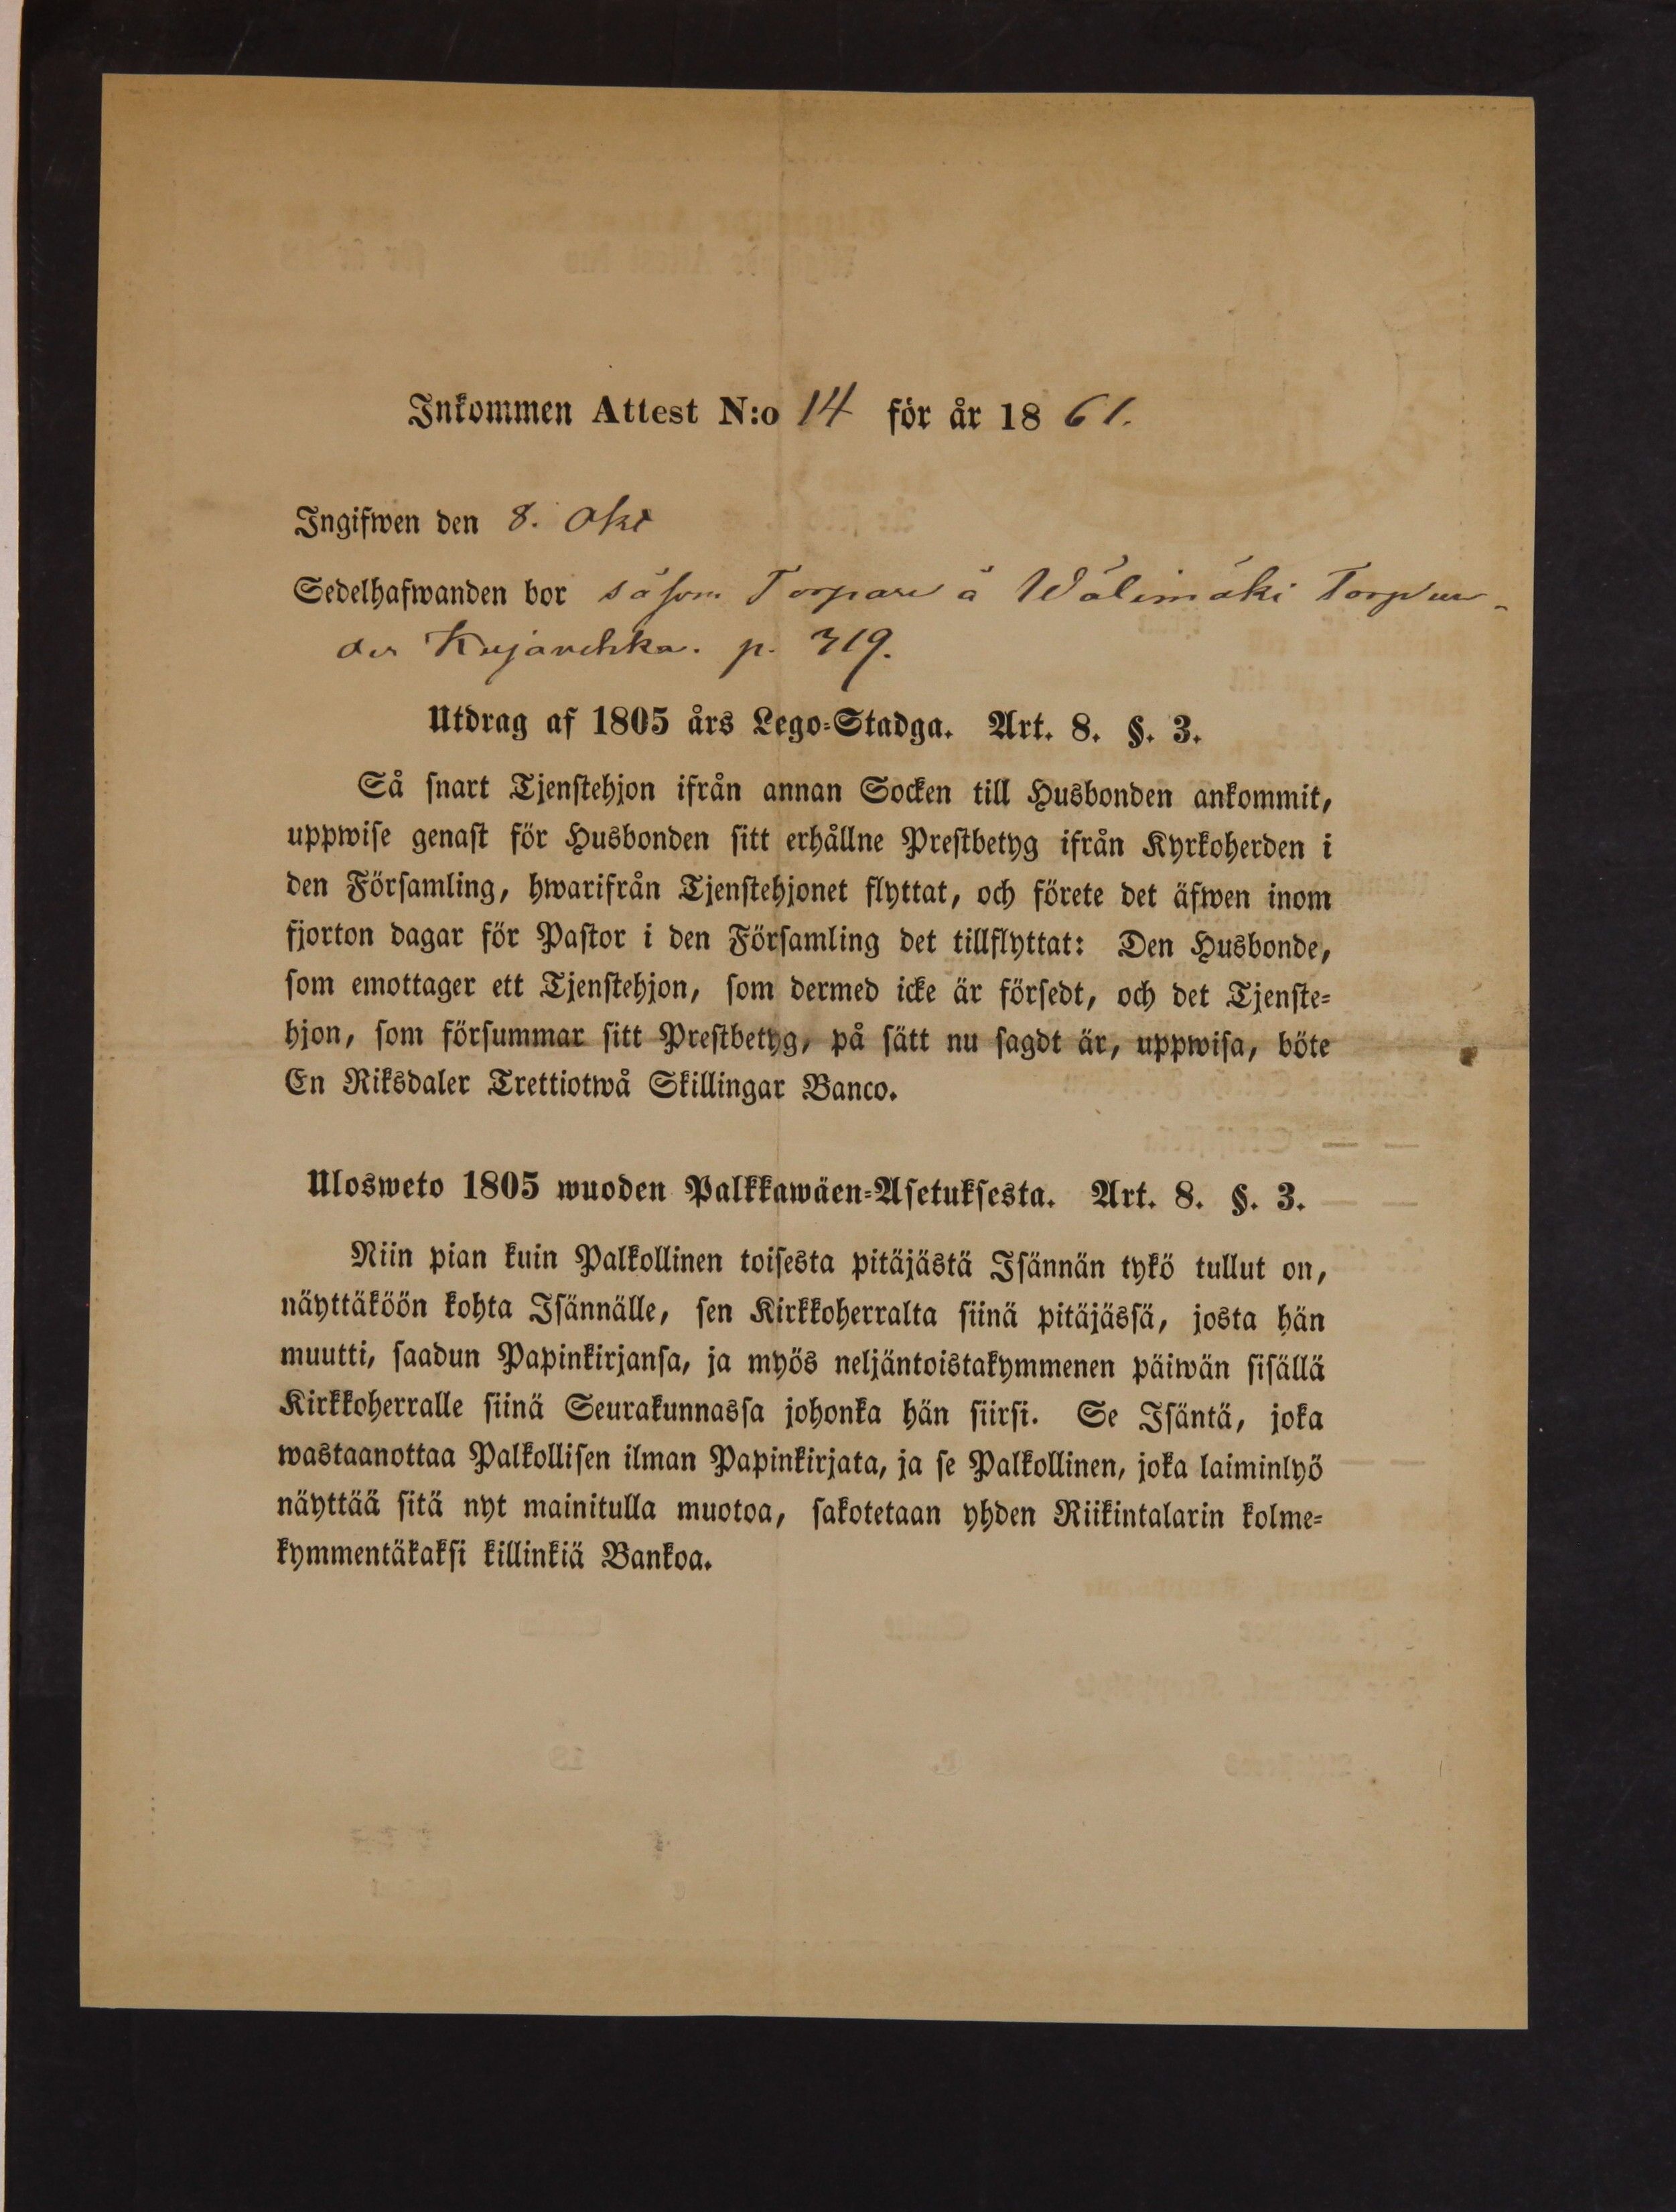 Inkommen Attest N:o 14 för år 1861.
Ingifwen den 8. Okt
Sedelhafwanden bor såsom Torpare å Wälimäki Torp un-
der p. 319.
Utdrag af 1805 års Lego-Stadga. Art. 8. §. 3.
Så snart Tjenstehjon ifrån annan Socken till Husbonden ankommit,
uppwise genast för Husbonden sitt erhållne Prestbetyg ifrån Kyrkoherden i
den Församling, hwarifrån Tjenstehjonet flyttat, och förete det äfwen inom
fjorton dagar för Pastor i den Församling det tillflyttat: Den Husbonde,
som emottager ett Tjenstehjon, som dermed icke är försedt, och det Tjenste-
hjon, som försummar sitt Prestbetyg, på sätt nu sagdt är, uppwisa, böte
En Riksdaler Trettiotwå Skillingar Banco.
Ulosweto 1805 wuoden Palkkawäen-Asetuksesta. Art. 8. §. 3.
Niin pian kuin Palkollinen toisesta pitäjästä Isännän tykö tullut on,
näyttäköön kohta Isännälle, sen Kirkkoherralta siinä pitäjässä, josta hän
muutti, saadun Papinkirjansa, ja myös neljäntoistakymmenen päiwän sisällä
Kirkkoherralle siinä Seurakunnassa johonka hän siirsi. Se Isäntä, joka
wastaanottaa Palkollisen ilman Papinkirjata, ja se Palkollinen, joka laiminlyö
näyttää sitä nyt mainitulla muotoa, sakotetaan yhden Riikintalarin kolme-
kymmentäkaksi killinkiä Bankoa.